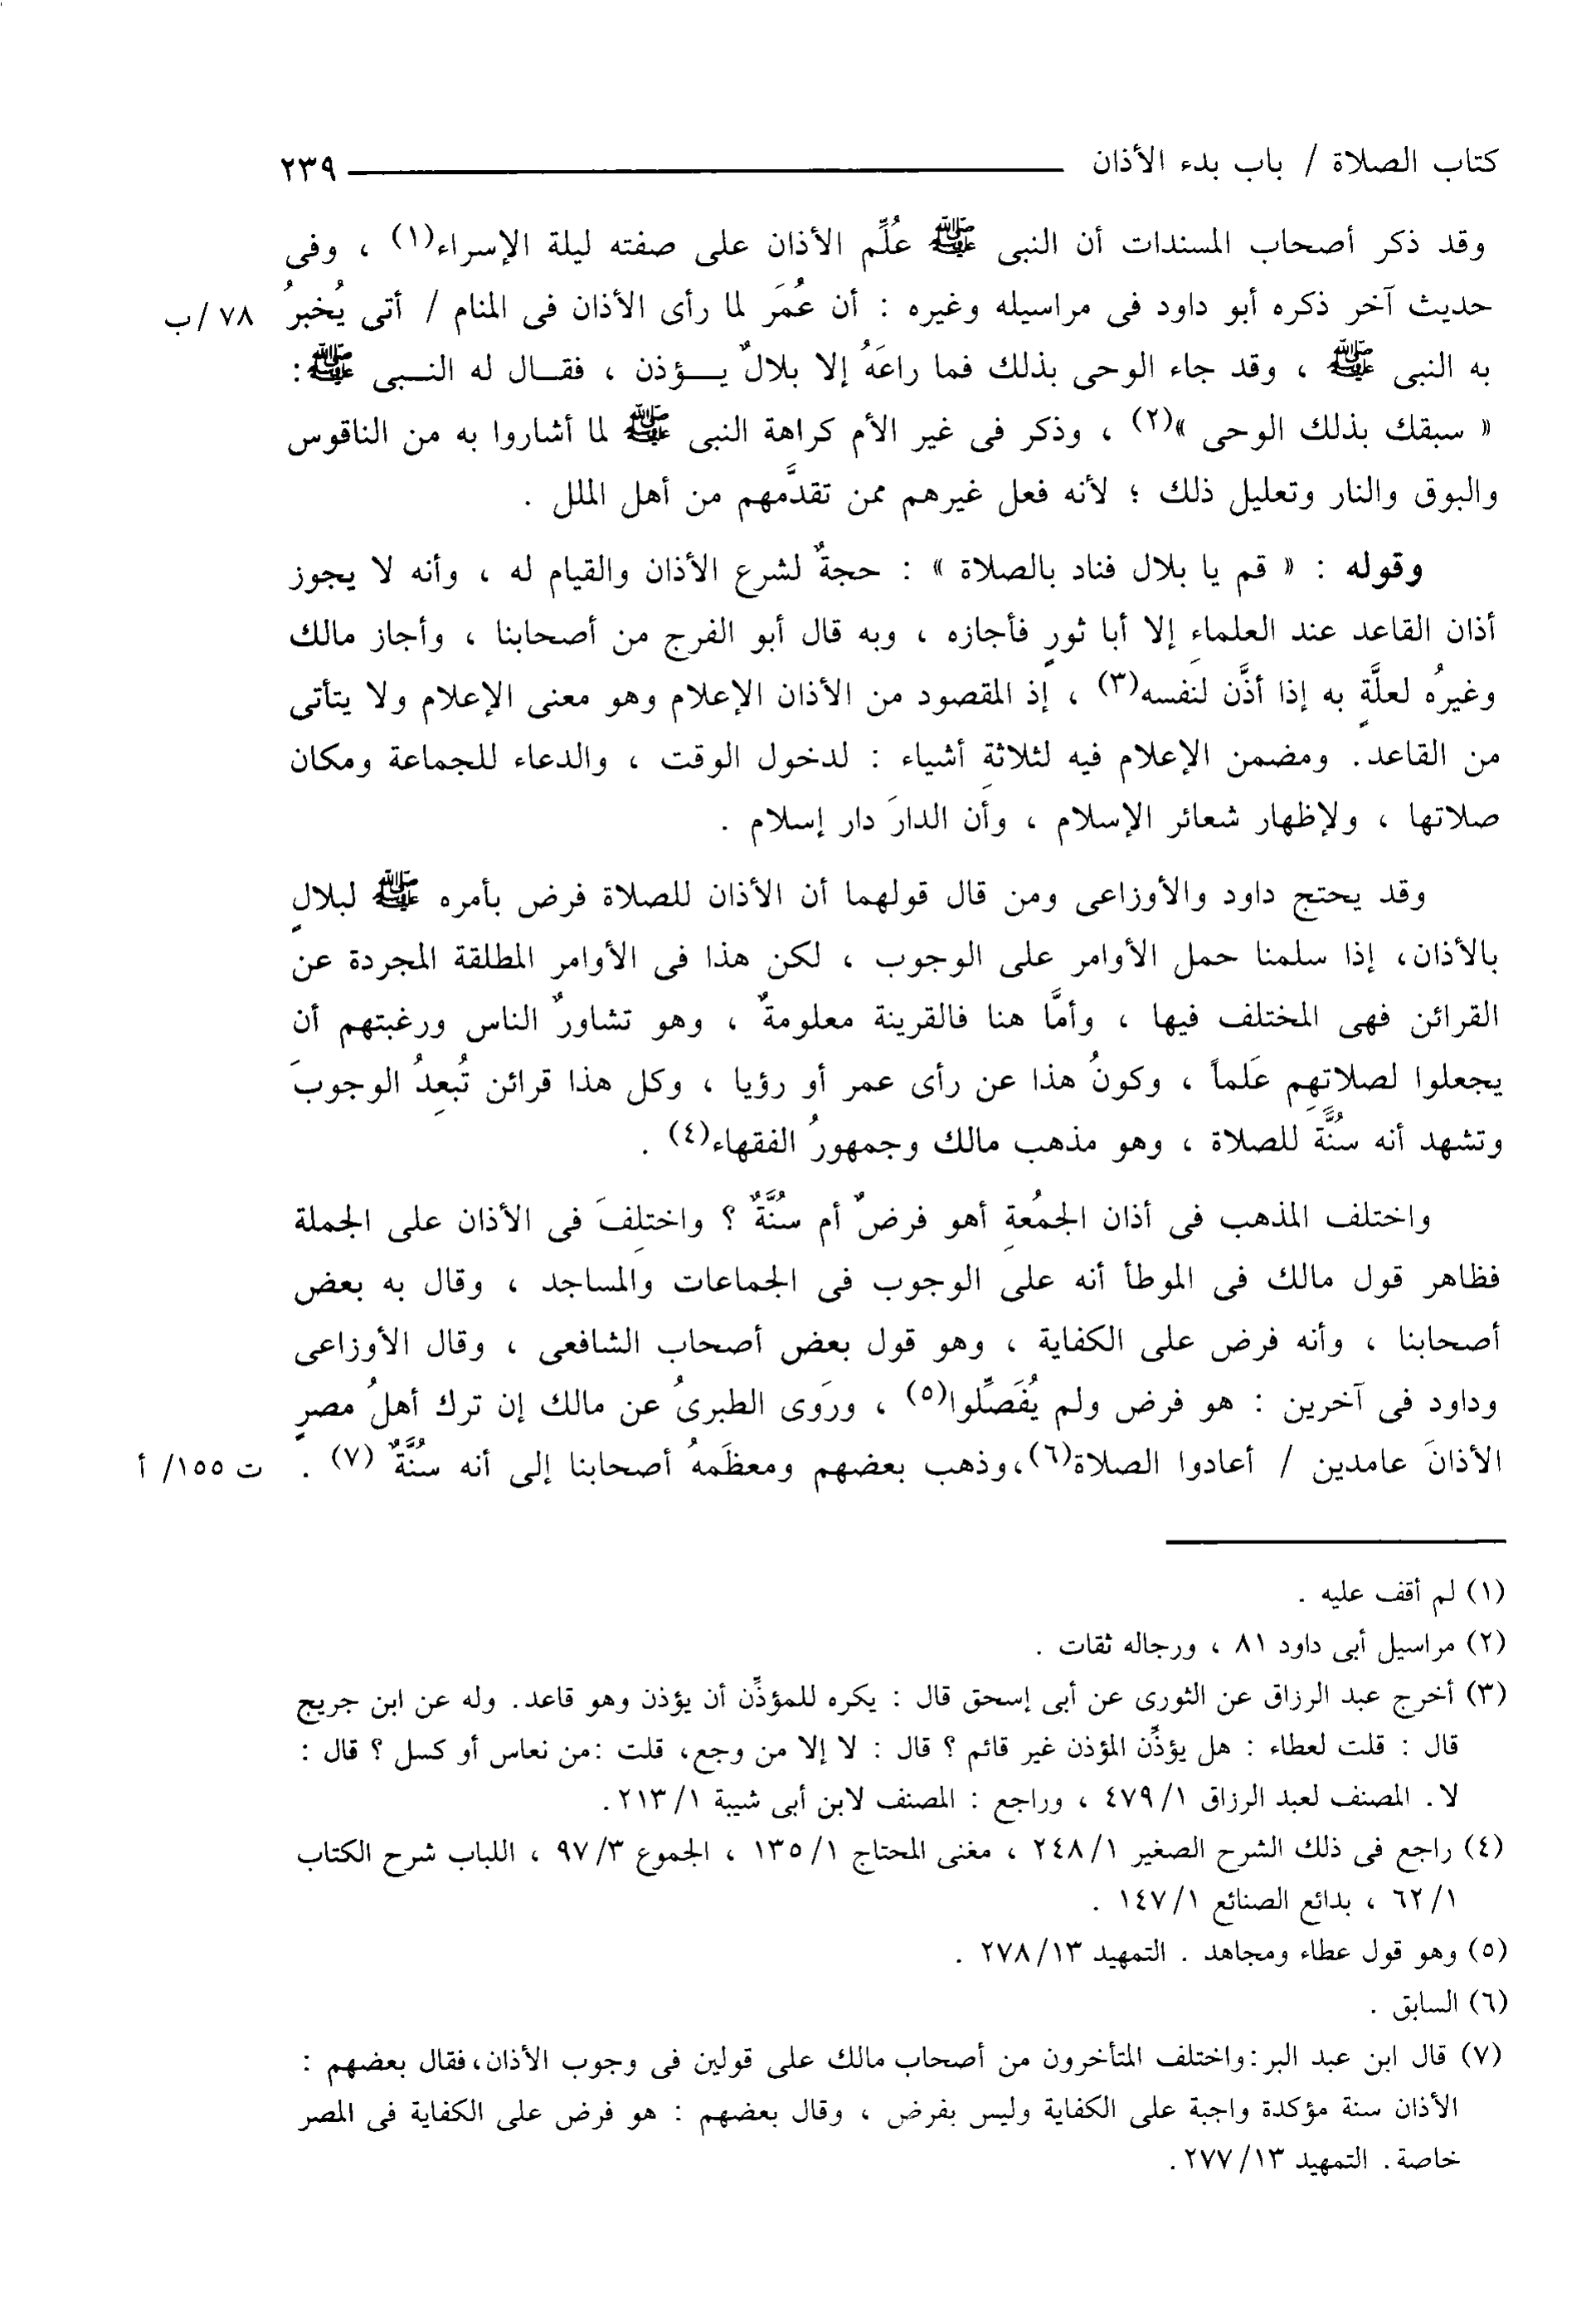 كتاب الصلاة / باب بدء الأذان ٢٣٩
وقد ذكر أصحاب المسندات أن النبى ﷺ عُلِّم الأذان على صفته ليلة الإسراء(١) ، وفى
حديث آخر ذكره أبو داود فى مراسيله وغيره : أن عُمَر لما رأى الأذان فى المنام / أتى يُخبرُ ٧٨ /ب
به النبى ﷺ ، وقد جاء الوحى بذلك فما راعَهُ إلا بلالٌ يــؤذن ، فقــال له النــبى ﷺ :
« سبقك بذلك الوحى »(٢) ، وذكر فى غير الأم كراهة النبى ﷺ لما أشاروا به من الناقوس
والبوق والنار وتعليل ذلك ؛ لأنه فعل غيرهم ممن تقدَّمهم من أهل الملل .
وقوله : « قم يا بلال فناد بالصلاة » : حجةٌ لشرع الأذان والقيام له ، وأنه لا يجوز
أذان القاعد عند العلماءِ إلا أبا ثورٍ فأجازه ، وبه قال أبو الفرج من أصحابنا ، وأجاز مالك
وغيرُه لعلَّةٍ به إذا أذَّن لنفسه(٣) ، إذ المقصود من الأذان الإعلام وهو معنى الإعلام ولا يتأتى
من القاعد. ومضمن الإعلام فيه لثلاثةِ أشياء : لدخول الوقت ، والدعاء للجماعة ومكان
صلاتها ، ولإظهار شعائر الإسلام ، وأن الدارَ دار إسلام .
وقد يحتج داود والأوزاعى ومن قال قولهما أن الأذان للصلاة فرض بأمره ﷺ لبلالٍ
بالأذان، إذا سلمنا حمل الأوامر على الوجوب ، لكن هذا فى الأوامر المطلقة المجردة عن
القرائن فهى المختلف فيها ، وأمَّا هنا فالقرينة معلومةٌ ، وهو تشاورٌ الناس ورغبتهم أن
يجعلوا لصلاتهِم عَلَماً ، وكونُ هذا عن رأى عمر أو رؤيا ، وكل هذا قرائن تُبعِدُ الوجوبَ
وتشهد أنه سُنَّةً للصلاة ، وهو مذهب مالك وجمهورُ الفقهاء(٤) .
واختلف المذهب فى أذان الجمُعةِ أهو فرضٌ أم سُنَّةٌ ؟ واختلِفَ فى الأذان على الجملة
فظاهر قول مالك فى الموطأ أنه على الوجوب فى الجماعات والمساجد ، وقال به بعض
أصحابنا ، وأنه فرض على الكفاية ، وهو قول بعض أصحاب الشافعى ، وقال الأوزاعى
وداود فى آخرين : هو فرض ولم يُفَصِّلوا(٥) ، وروَى الطبرىُ عن مالك إن ترك أهلُ مصرٍ
الأذانَ عامدين / أعادوا الصلاة(٦)،وذهب بعضهم ومعظَمهُ أصحابنا إلى أنه سُنَّةٌ (٧) . ت ١٥٥/ أ
(١) لم أقف عليه .
(٢) مراسيل أبى داود ٨١ ، ورجاله ثقات .
(٣) أخرج عبد الرزاق عن الثورى عن أبى إسحق قال : يكره للمؤذِّن أن يؤذن وهو قاعد. وله عن ابن جريج
قال : قلت لعطاء : هل يؤذِّن المؤذن غير قائم ؟ قال : لا إلا من وجع، قلت :من نعاس أو كسل ؟ قال :
لا. المصنف لعبد الرزاق ٤٧٩/١ ، وراجع : المصنف لابن أبى شيبة ٢١٣/١.
(٤) راجع فى ذلك الشرح الصغير ٢٤٨/١ ، مغنى المحتاج ١٣٥/١ ، المجموع ٩٧/٣ ، اللباب شرح الكتاب
٦٢/١ ، بدائع الصنائع ١٤٧/١ .
(٥) وهو قول عطاء ومجاهد . التمهيد ٢٧٨/١٣ .
(٦) السابق .
(٧) قال ابن عبد البر :واختلف المتأخرون من أصحاب مالك على قولين فى وجوب الأذان،فقال بعضهم :
الأذان سنة مؤكدة واجبة على الكفاية وليس بفرض ، وقال بعضهم : هو فرض على الكفاية فى المصر
خاصة. التمهيد ٢٧٧/١٣.